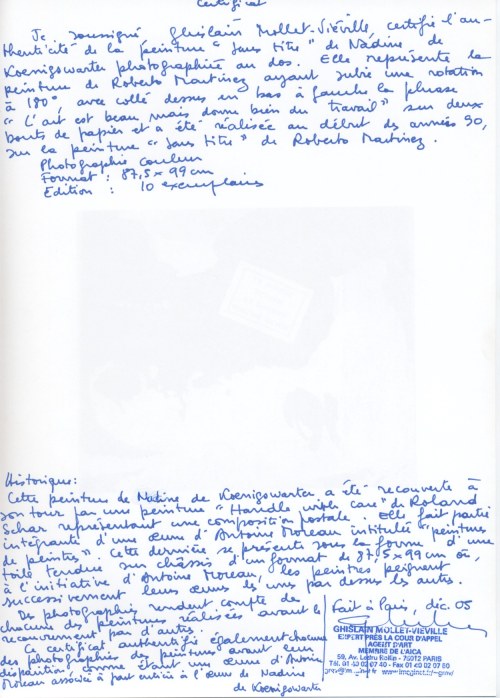 Certificat
Je soussigné Ghislain Mollet-Viéville, certifie l'au-
thenticité de la peinture "sans titre" de Nadine de
Koenigswarter photographiée au dos. Elle représente la
peinture de Roberto Martinez ayant subie une rotation
à 180°, avec collé dessus en bas à gauche la phrase
"L'art est beau, mais donne bien du travail" sur deux
bouts de papier et a été réalisée au début des années 90,
sur la peinture "sans titre" de Roberto Martinez.
Photographie couleur
Format : 87,5 x 99 cm
Edition : 10 exemplaires
Historique:
Cette peinture de Nadine de Koenigswarter a été recouverte à
son tour par une peinture "Handle with care" de Roland
Schär représentant une composition postale. Elle fait partie
intégrante d'une œuvre d'Antoine Moreau intitulée "peintures
de peintres". Cette dernière se présente sous la forme d'une
toile tendue sur châssis d'un format de 87,5 x 99 cm où,
à l'initiative d'Antoine Moreau, les peintres peignent
successivement leurs œuvres les unes par dessus les autres.
Des photographies rendent compte de
chacune des peintures réalisées avant le
recouvrement par d'autres.
Ce certificat authentifie également chacune
des photographies des peintures avant leur
disparition comme étant une œuvre d'Antoine
Moreau associée à part entière à l'œuvre de Nadine
de Koenigswarter
Fait à Paris, déc. 05
GHISLAIN MOLLET-VIEVILLE
EXPERT PRES LA COUR D'APPEL
AGENT D'ART
MEMBRE DE L'AICA
59, Av. Ledru Rollin - 75012 PARIS